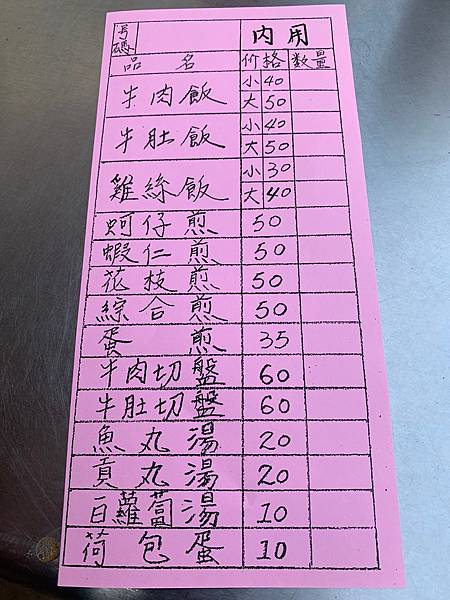 号碼 内用
品名 价格 数量
牛肉飯 小 40
大 50
牛肚飯 小 40
大 50
雞絲飯 小 30
大 40
蚵仔煎 50
蝦仁煎 50
花枝煎 50
綜合煎 50
蛋煎 35
牛肉切盤 60
牛肚切盤 60
魚丸湯 20
貢丸湯 20
白蘿蔔湯 10
荷包蛋 10